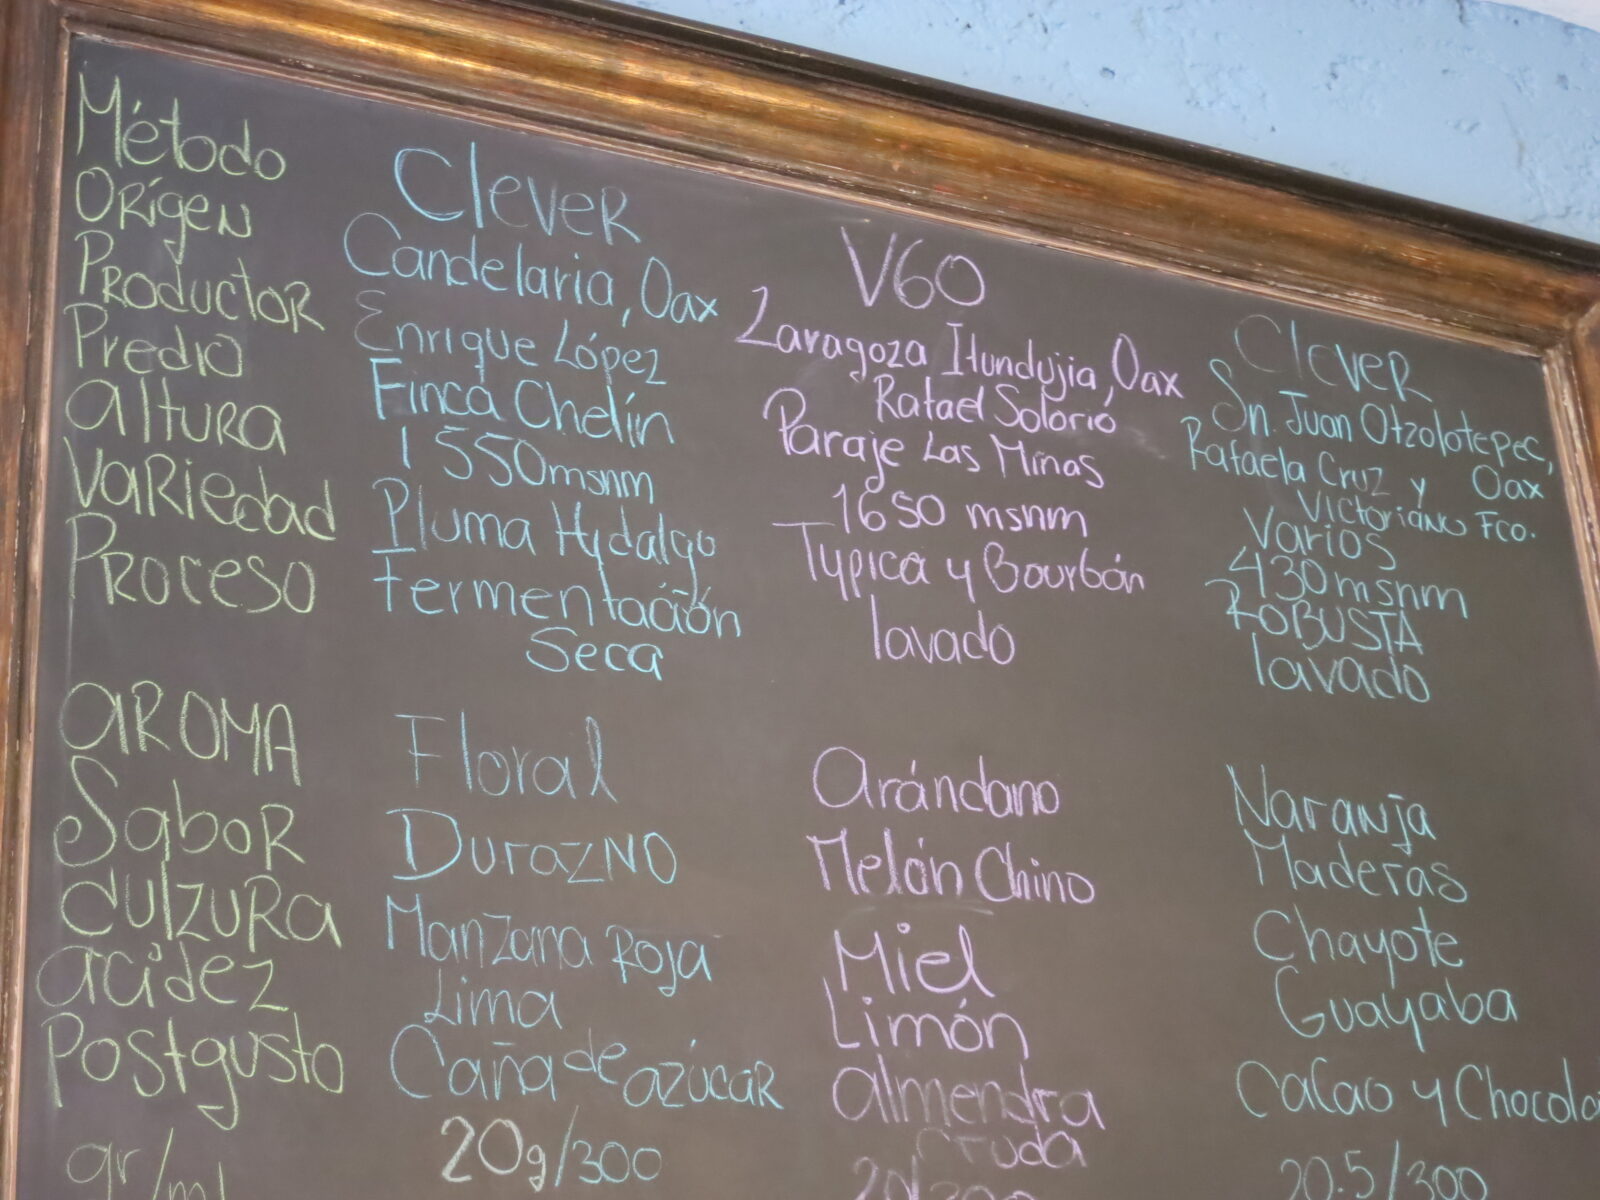 Método
Orígen
Productor
Predio
altura
Variedad
Proceso
aROMA
Sabor
dulzura
acidez
Postgusto
gr/ml
Clever
Candelaria, Oax
Enrique López
Finca Chelín
1550msnm
Pluma Hydalgo
Fermentación
Seca
Floral
Durazno
Manzana Roja
Lima
Caña de azúcar
20g/300
V60
Zaragoza Itundujia, Oax
Rafael Solorio
Paraje Las Minas
1650 msnm
Typica y Bourbón
lavado
Arándano
Melón Chino
Miel
Limón
almendra
cruda
20/300
Clever
Sn. Juan Otzolotepec,
Oax
Rafaela Cruz y
Victoriano Fco.
Varios
430msnm
ROBUSTA
lavado
Naranja
Maderas
Chayote
Guayaba
Cacao y Chocola
20.5/300